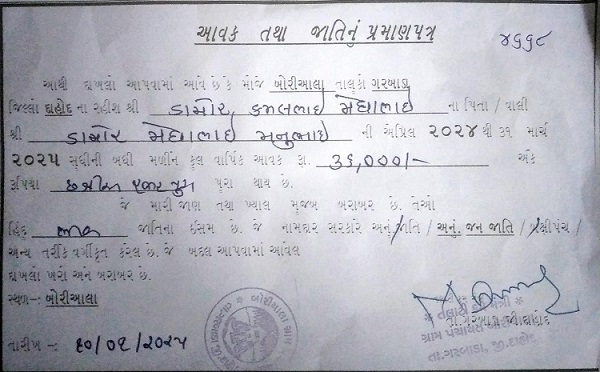 આવક તથા જાતિનું પ્રમાણપત્ર
૪૬૬૮
આથી દાખલો આપવામાં આવે છે કે મોજે બોરીઆલા તાલુકો ગરબાડા
જિલ્લો દાહોદ ના રહીશ શ્રી ડામોર કમલભાઇ મેઘાભાઇ ના પિતા / વાલી
શ્રી ડામોર મેઘાભાઇ મનુભાઇ ની એપ્રિલ ૨૦૨૪ થી ૩૧ માર્ચ
૨૦૨૫ સુધીની બધી મળીને કૂલ વાર્ષિક આવક રૂા. ૩૬,૦૦૦/- અંકે
રૂપિયા છત્રીસ હજાર પુરા થાય છે.
જે મારી જાણ તથા ખ્યાલ મુજબ બરાબર છે. તેઓ
હિંદુ ભીલ જાતિના ઈસમ છે. જે નામદાર સરકારે અનું.જાતિ / અનું. જન જાતિ / બક્ષીપંચ /
અન્ય તરીકે વર્ગીકૃત કરેલ છે. જે બદલ આપવામાં આવેલ
દાખલો ખરો અને બરાબર છે.
સ્થળ-: બોરીઆલા
તલાટી કમ મંત્રી
ગ્રામ પંચાયત
તા.ગરબાડા, જી.દાહોદ
તારીખ -: ૨૦/૦૬/૨૦૨૫